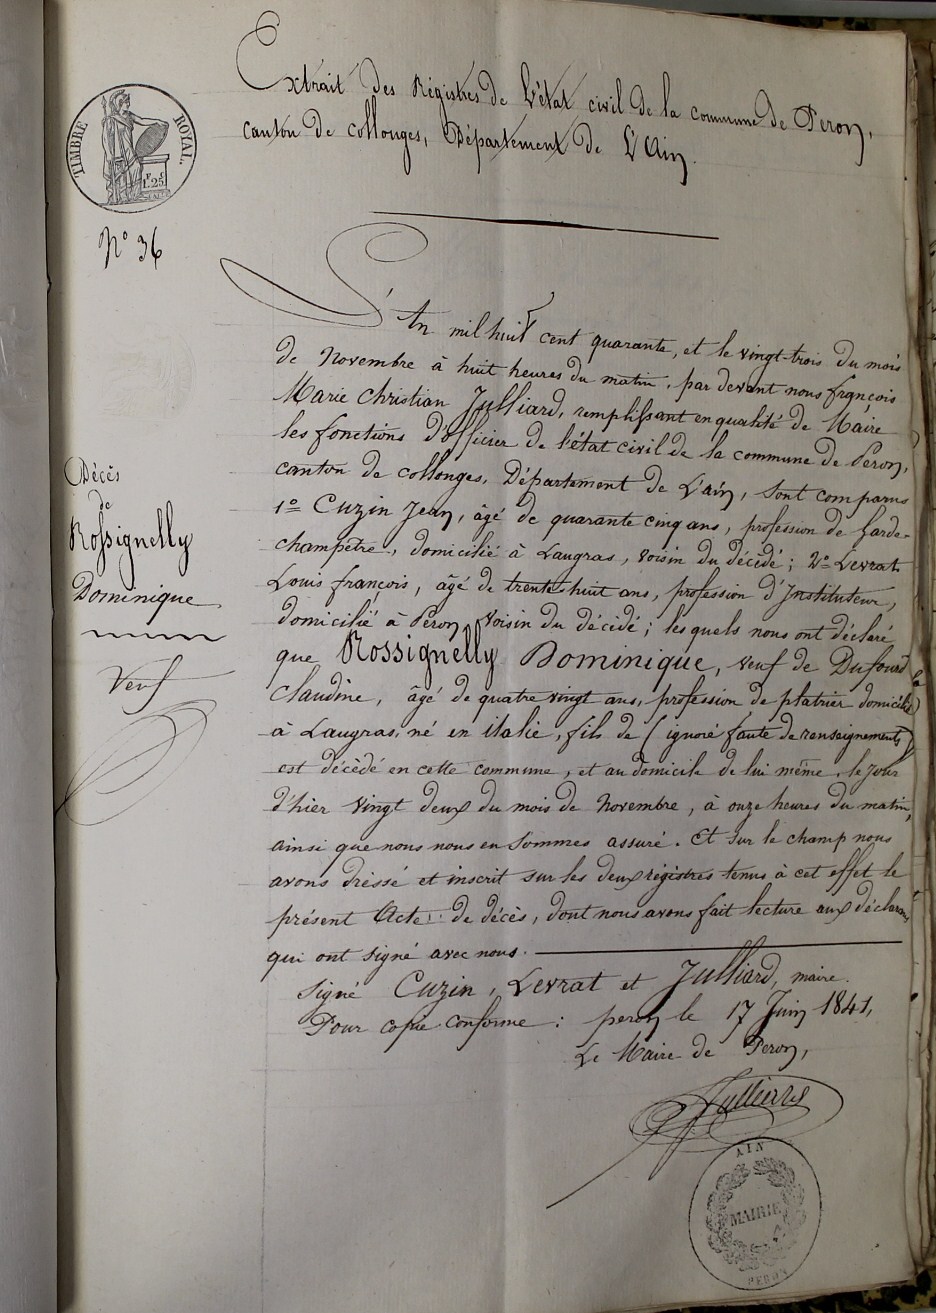 Extrait des Régistres de L'état civil de la commune de Peron,
canton de collonges, Département de L'Ain.
TIMBRE ROYAL.
1 F. 25 C.
N° 36
L'An mil huit cent quarante, et le vingt-trois du mois
de Novembre à huit heures du matin, par devant nous françois
Marie Christian Julliard, remplissant en qualité de Maire
les fonctions d'officier de l'état civil de la commune de Peron,
canton de collonges, Département de L'ain, sont comparus
1° Cuzin Jean, âgé de quarante cinq ans, profession de Garde-
champêtre, domicilié à Laugras, voisin du décédé; 2° Levrat
Louis françois, âgé de trente huit ans, profession d'Instituteur,
domicilié à Peron voisin du décédé; lesquels nous ont déclaré
que Rossignelly Dominique, veuf de Dufourd
Claudine, âgé de quatre vingt ans, profession de platrier domicilié
à Laugras, né en italie, fils de (ignoré faute de renseignements)
est décédé en cette commune, et au domicile de lui même, le jour
d'hier vingt deux du mois de Novembre, à onze heures du matin,
ainsi que nous nous en sommes assuré. Et sur le champ nous
avons dressé et inscrit sur les deux régistres tenus à cet effet le
présent Acte de décès, dont nous avons fait lecture aux déclarants
qui ont signé avec nous.
signé Cuzin, Levrat et Julliard, maire.
Pour copie conforme: peron le 17 Juin 1841,
Le Maire de Peron,
Décès
de
Rossignelly
Dominique
Veuf
AIN
MAIRIE
PERON